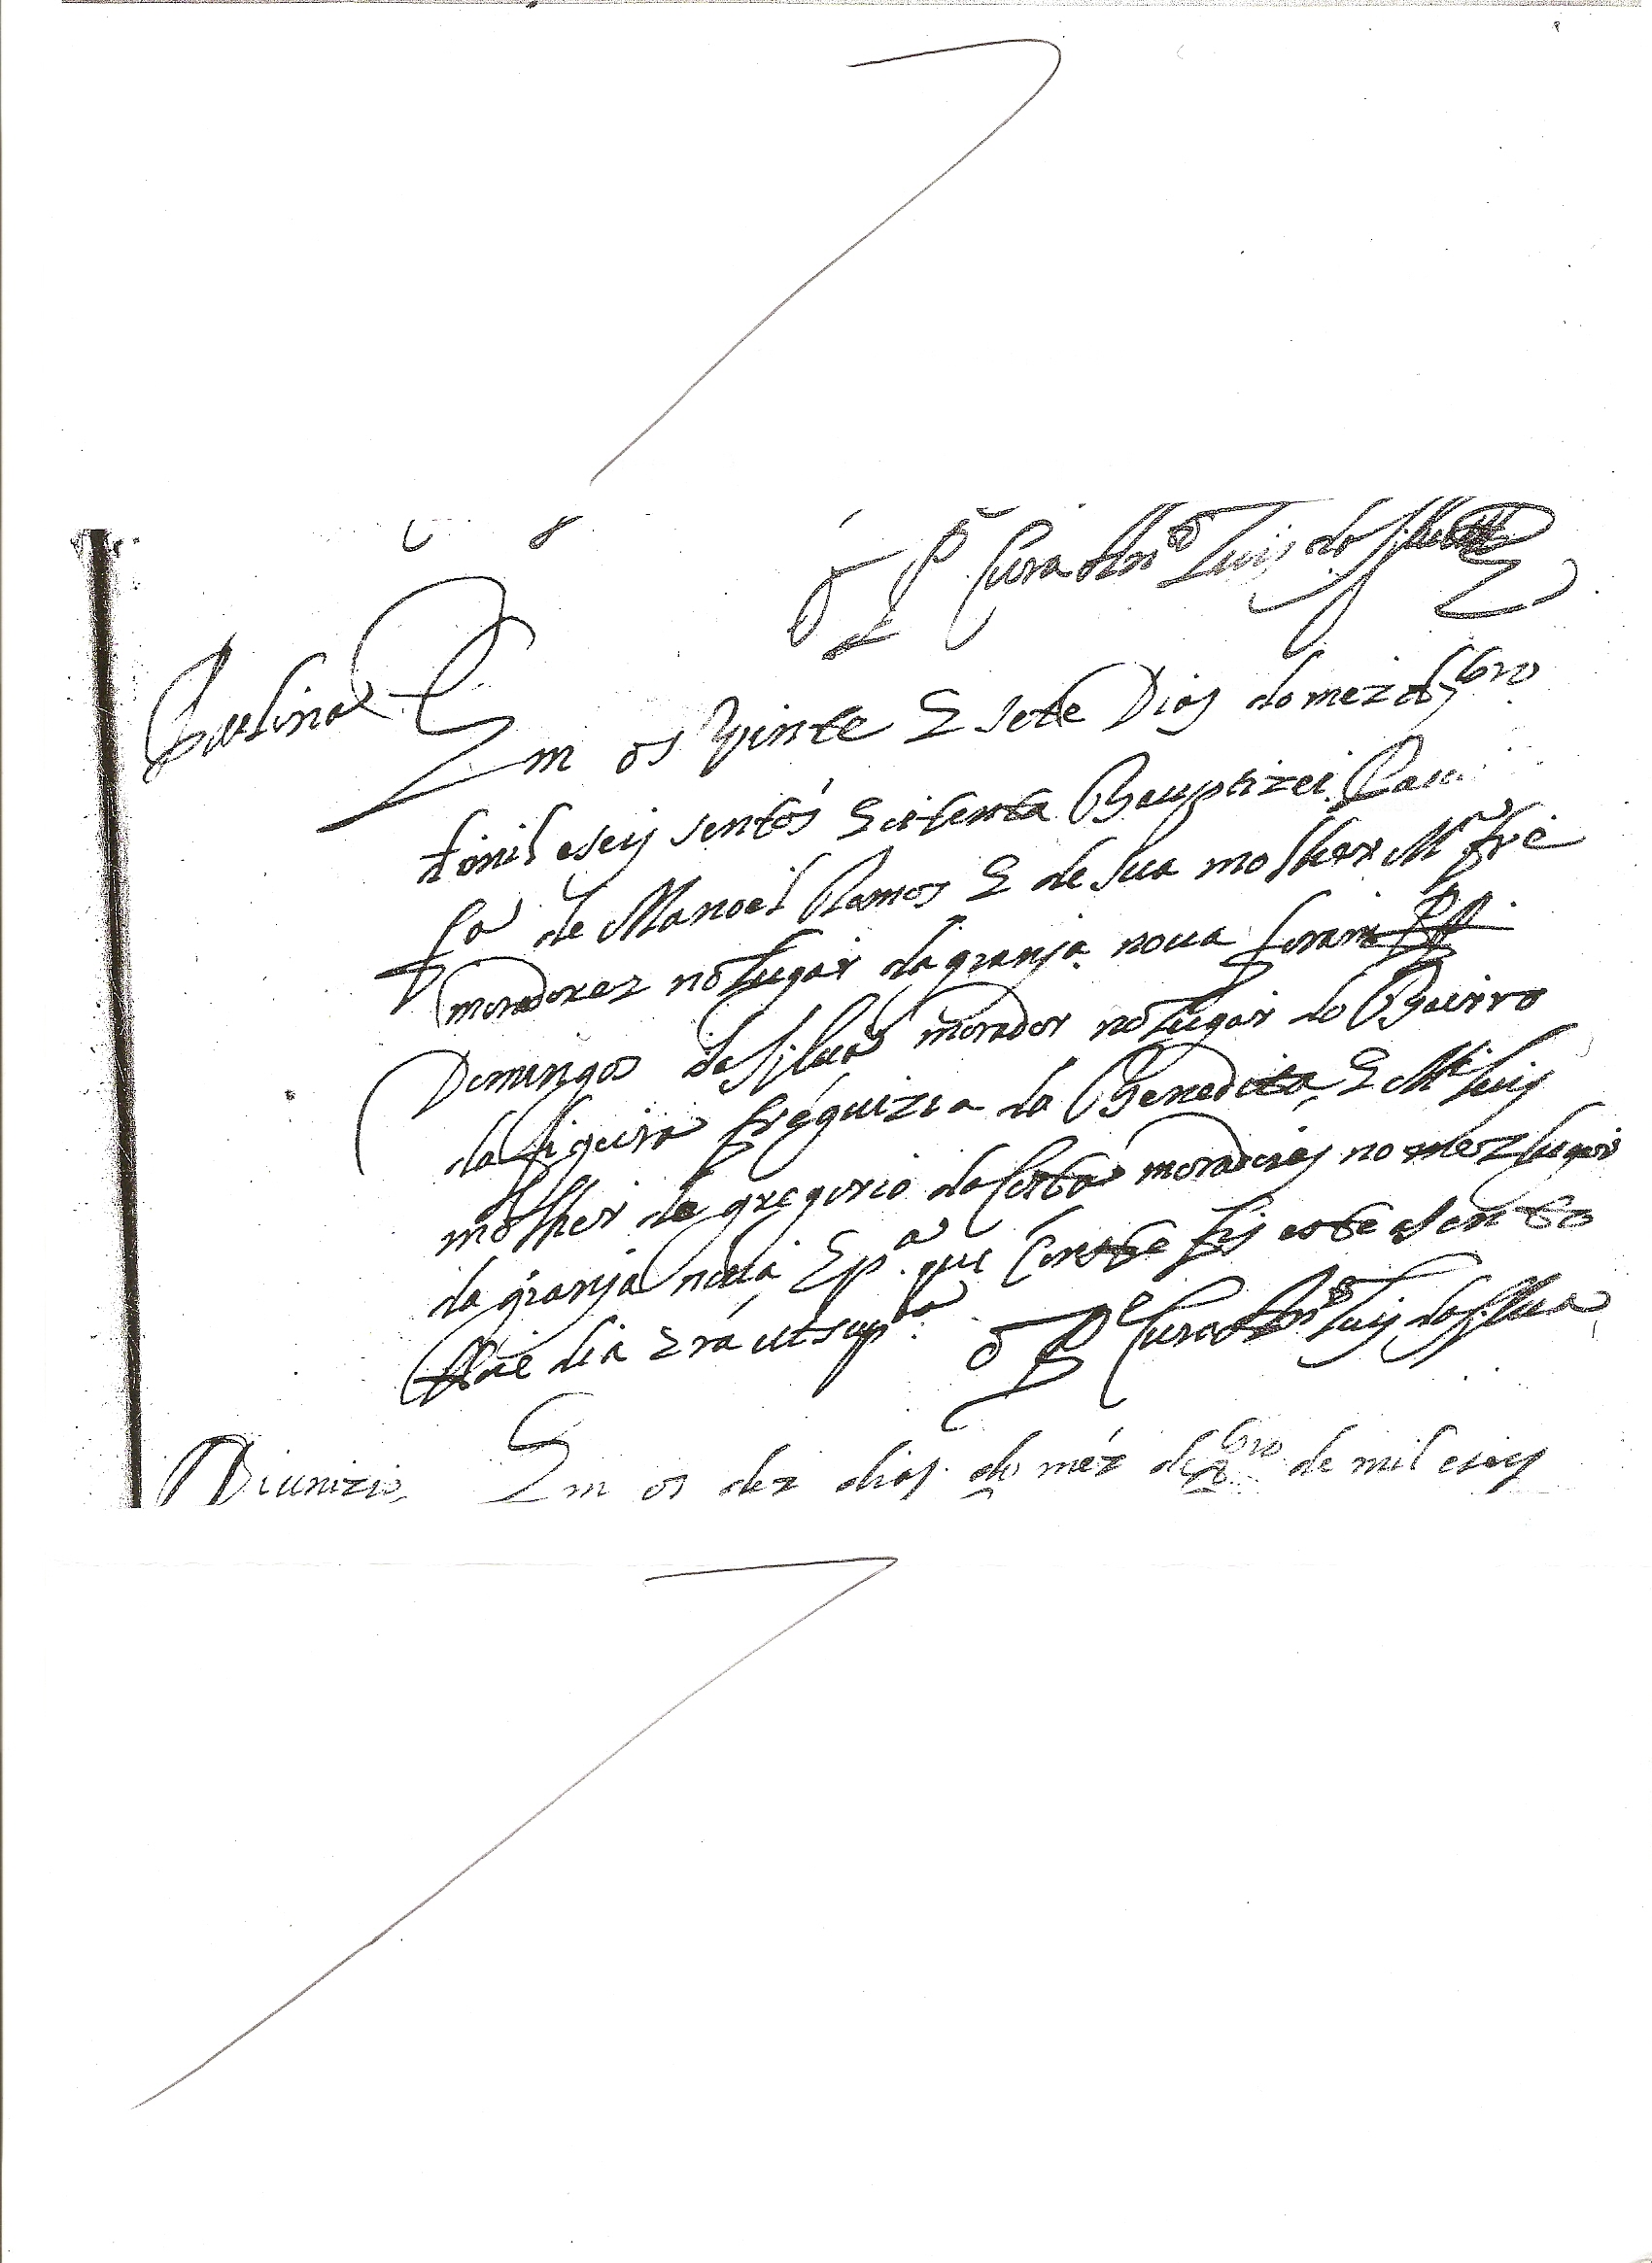 o P. Cura Anto Luis da Silva
Paulina
Em os Vinte E sete Dias do mez de 9bro
de mil e seis sentos E setenta Bauptizei Pau
fa de Manoel Ramos E de sua molher Ma
moradorez no Lugar da granja noua foram PP
Domingos da Silua morador no Lugar do Bairro
da figueira freguizia da Benedita, E Ma Luis
molher de gregorio da Costa moradores no mez lugar
da granja noua, E pa. que Conste fis este asento
oie dia Era ut supra. o P.e Cura Anto Luis da Silua
Diunizio, Em os dez dias do méz de bro de mil e seis